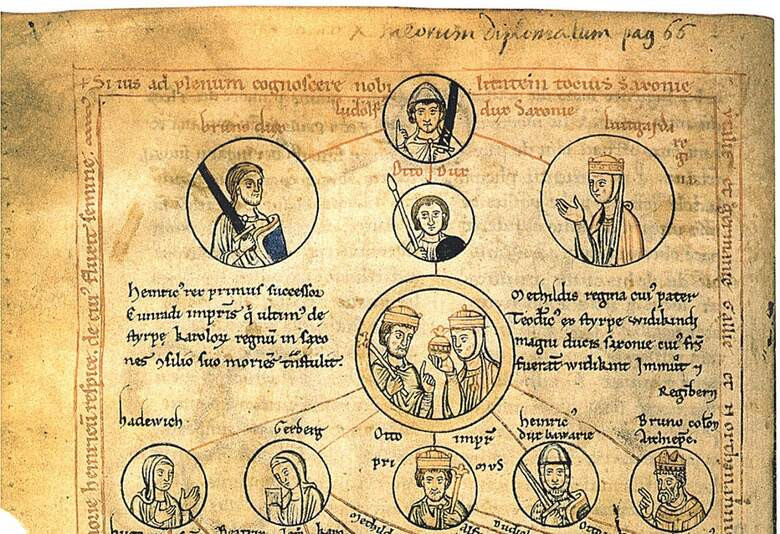 alorum diplomatum pag 66
+ Si uis ad plenum cognoscere nobilitatem tocius Saxonie
Ludolf dux Saxonie
bruno dux
liutgardi regi
Otto Dux
Heinric' rex primus successor
Cunradi impris q ultim' de
styrpe karoloy regnum in saxo
nes consilio suo moriens transtulit.
Mechildis regina cui' pater
Teodric' ex styrpe widikindi
magni ducis saxonie cui' frs
fuerant widikint Immut 7
Reginbern
hadewich
Gerberg
Otto impr
primus
heinric'
dux bawarie
Bruno colon
Archiepc.
Mechild
Liudolf
Otto
heinricu respice. de cui' fluxit semine.
Gallie et